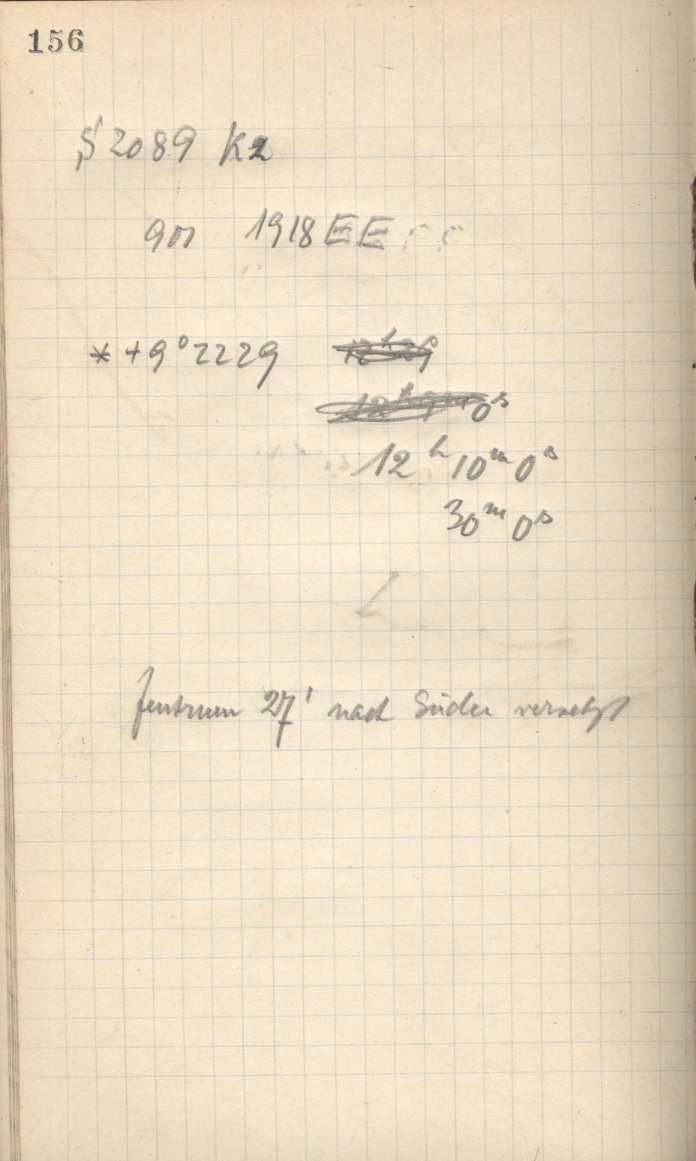 156
S 2089 K2
1918 EE
* +9° 2229 12h 29
0s
12h 10m 0s
30m 0s
Zentrum 27' nach Süden versetzt